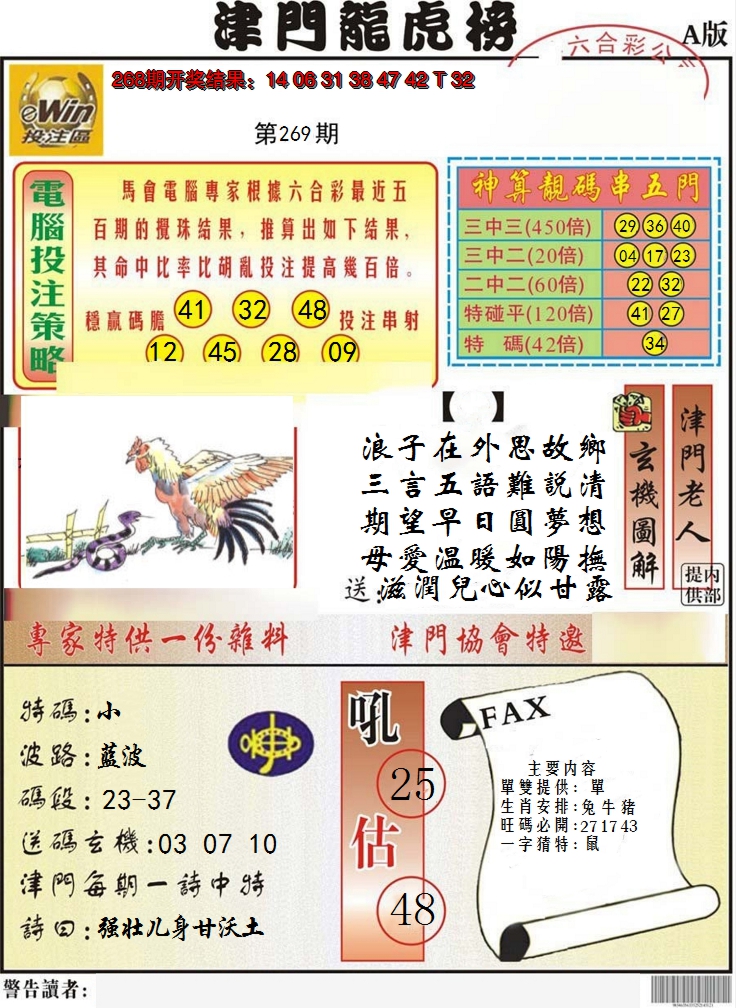 津門龍虎榜
A版
六合彩公司
eWin
投注區
268期开奖结果：14 06 31 38 47 42 T 32
第269期
電腦投注策略
馬會電腦專家根據六合彩最近五
百期的攪珠结果，推算出如下结果，
其命中比率比胡亂投注提高幾百倍。
穩贏碼膽 41 32 48 投注串射
12 45 28 09
神算靚碼串五門
三中三(450倍) 29 36 40
三中二(20倍) 04 17 23
二中二(60倍) 22 32
特碰平(120倍) 41 27
特 碼(42倍) 34
【 】
浪子在外思故鄉
三言五語難説清
期望早日圓夢想
母愛温暖如陽撫
送:滋潤兒心似甘露
玄機圖解
津門老人
内部提供
專家特供一份雜料
津門協會特邀
特碼:小
波路:藍波
碼段:23-37
送碼玄機:03 07 10
津門每期一詩中特
詩曰:强壮儿身甘沃土
吼 25
估 48
FAX
主要内容
單雙提供：單
生肖安排:兔牛猪
旺碼必開:271743
一字猜特:鼠
警告讀者: